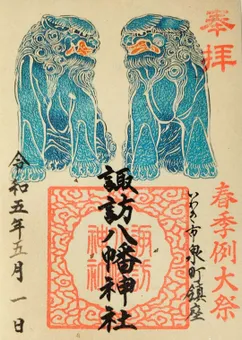 奉拝
春季例大祭
いわき市泉町鎮座
諏訪八幡神社
諏訪八幡神社
令和五年五月一日